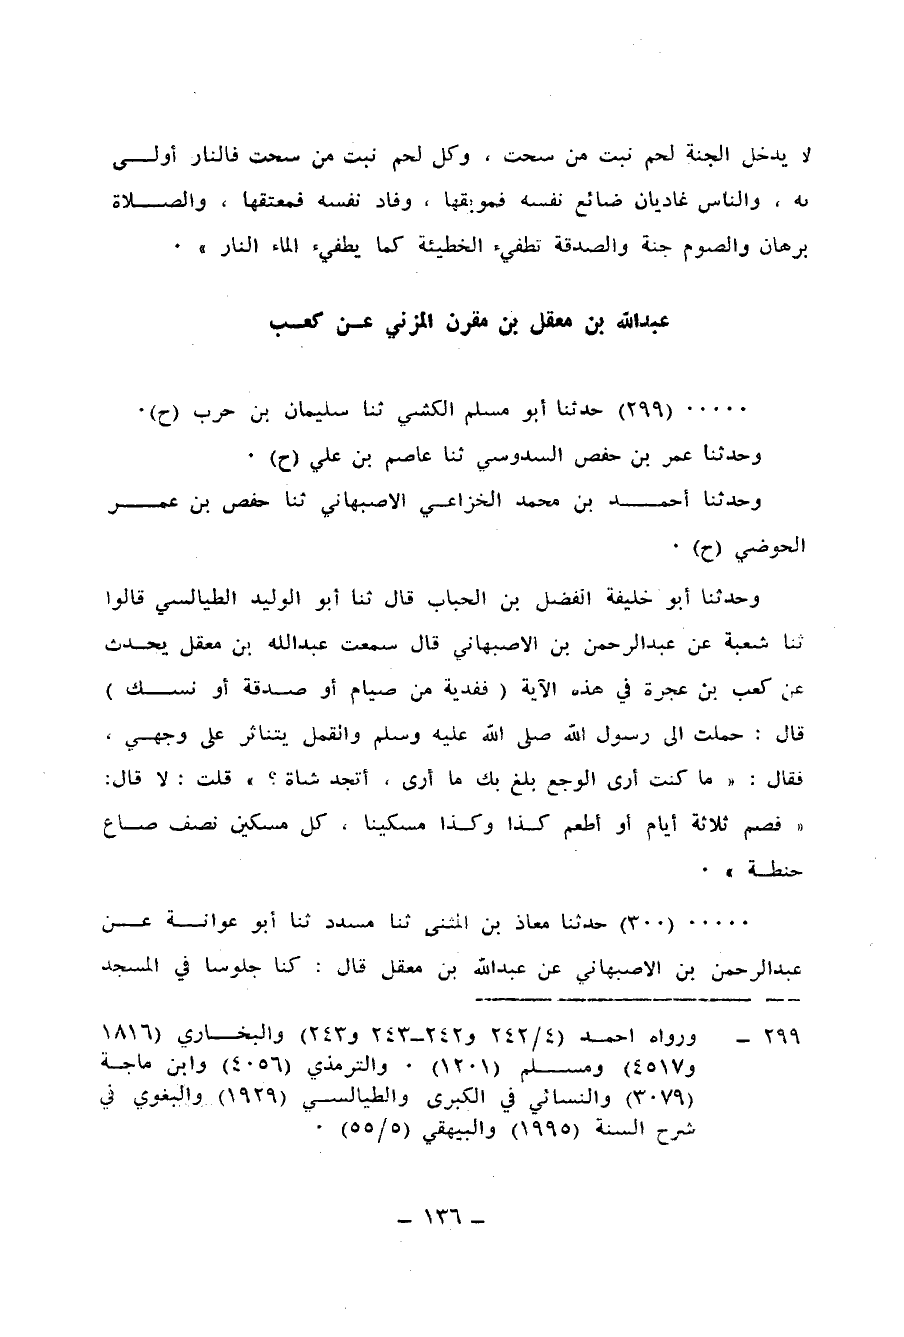 لا يدخل الجنة لحم نبت من سحت ، وكل لحم نبت من سحت فالنار أولى
به ، والناس غاديان ضائع نفسه فموبقها ، وفاد نفسه فمعتقها ، والصلاة
برهان والصوم جنة والصدقة تطفيء الخطيئة كما يطفيء الماء النار » ٠
عبدالله بن معقل بن مقرن المزني عن كعب
٠٠٠٠٠ (٢٩٩) حدثنا أبو مسلم الكشي ثنا سليمان بن حرب (ح)٠
وحدثنا عمر بن حفص السدوسي ثنا عاصم بن علي (ح) ٠
وحدثنا أحمد بن محمد الخزاعي الاصبهاني ثنا حفص بن عمر
الحوضي (ح) ٠
وحدثنا أبو خليفة الفضل بن الحباب قال ثنا أبو الوليد الطيالسي قالوا
ثنا شعبة عن عبدالرحمن بن الاصبهاني قال سمعت عبدالله بن معقل يحدث
عن كعب بن عجرة في هذه الآية ( ففدية من صيام أو صدقة أو نسك )
قال : حملت الى رسول الله صلى الله عليه وسلم والقمل يتناثر على وجهي ،
فقال : « ما كنت أرى الوجع بلغ بك ما أرى ، أتجد شاة ؟ » قلت : لا قال:
« فصم ثلاثة أيام أو أطعم كذا وكذا مسكينا ، كل مسكين نصف صاع
حنطة » ٠
٠٠٠٠٠ (٣٠٠) حدثنا معاذ بن المثنى ثنا مسدد ثنا أبو عوانة عن
عبدالرحمن بن الاصبهاني عن عبدالله بن معقل قال : كنا جلوسا في المسجد
٢٩٩ ـ ورواه احمد (٢٤٢/٤ و٢٤٢ـ٢٤٣ و٢٤٣) والبخاري (١٨١٦
و٤٥١٧) ومسلم (١٢٠١) ٠ والترمذي (٤٠٥٦) وابن ماجة
(٣٠٧٩) والنسائي في الكبرى والطيالسي (١٩٢٩) والبغوي في
شرح السنة (١٩٩٥) والبيهقي (٥٥/٥) ٠
ـ ١٣٦ ـ